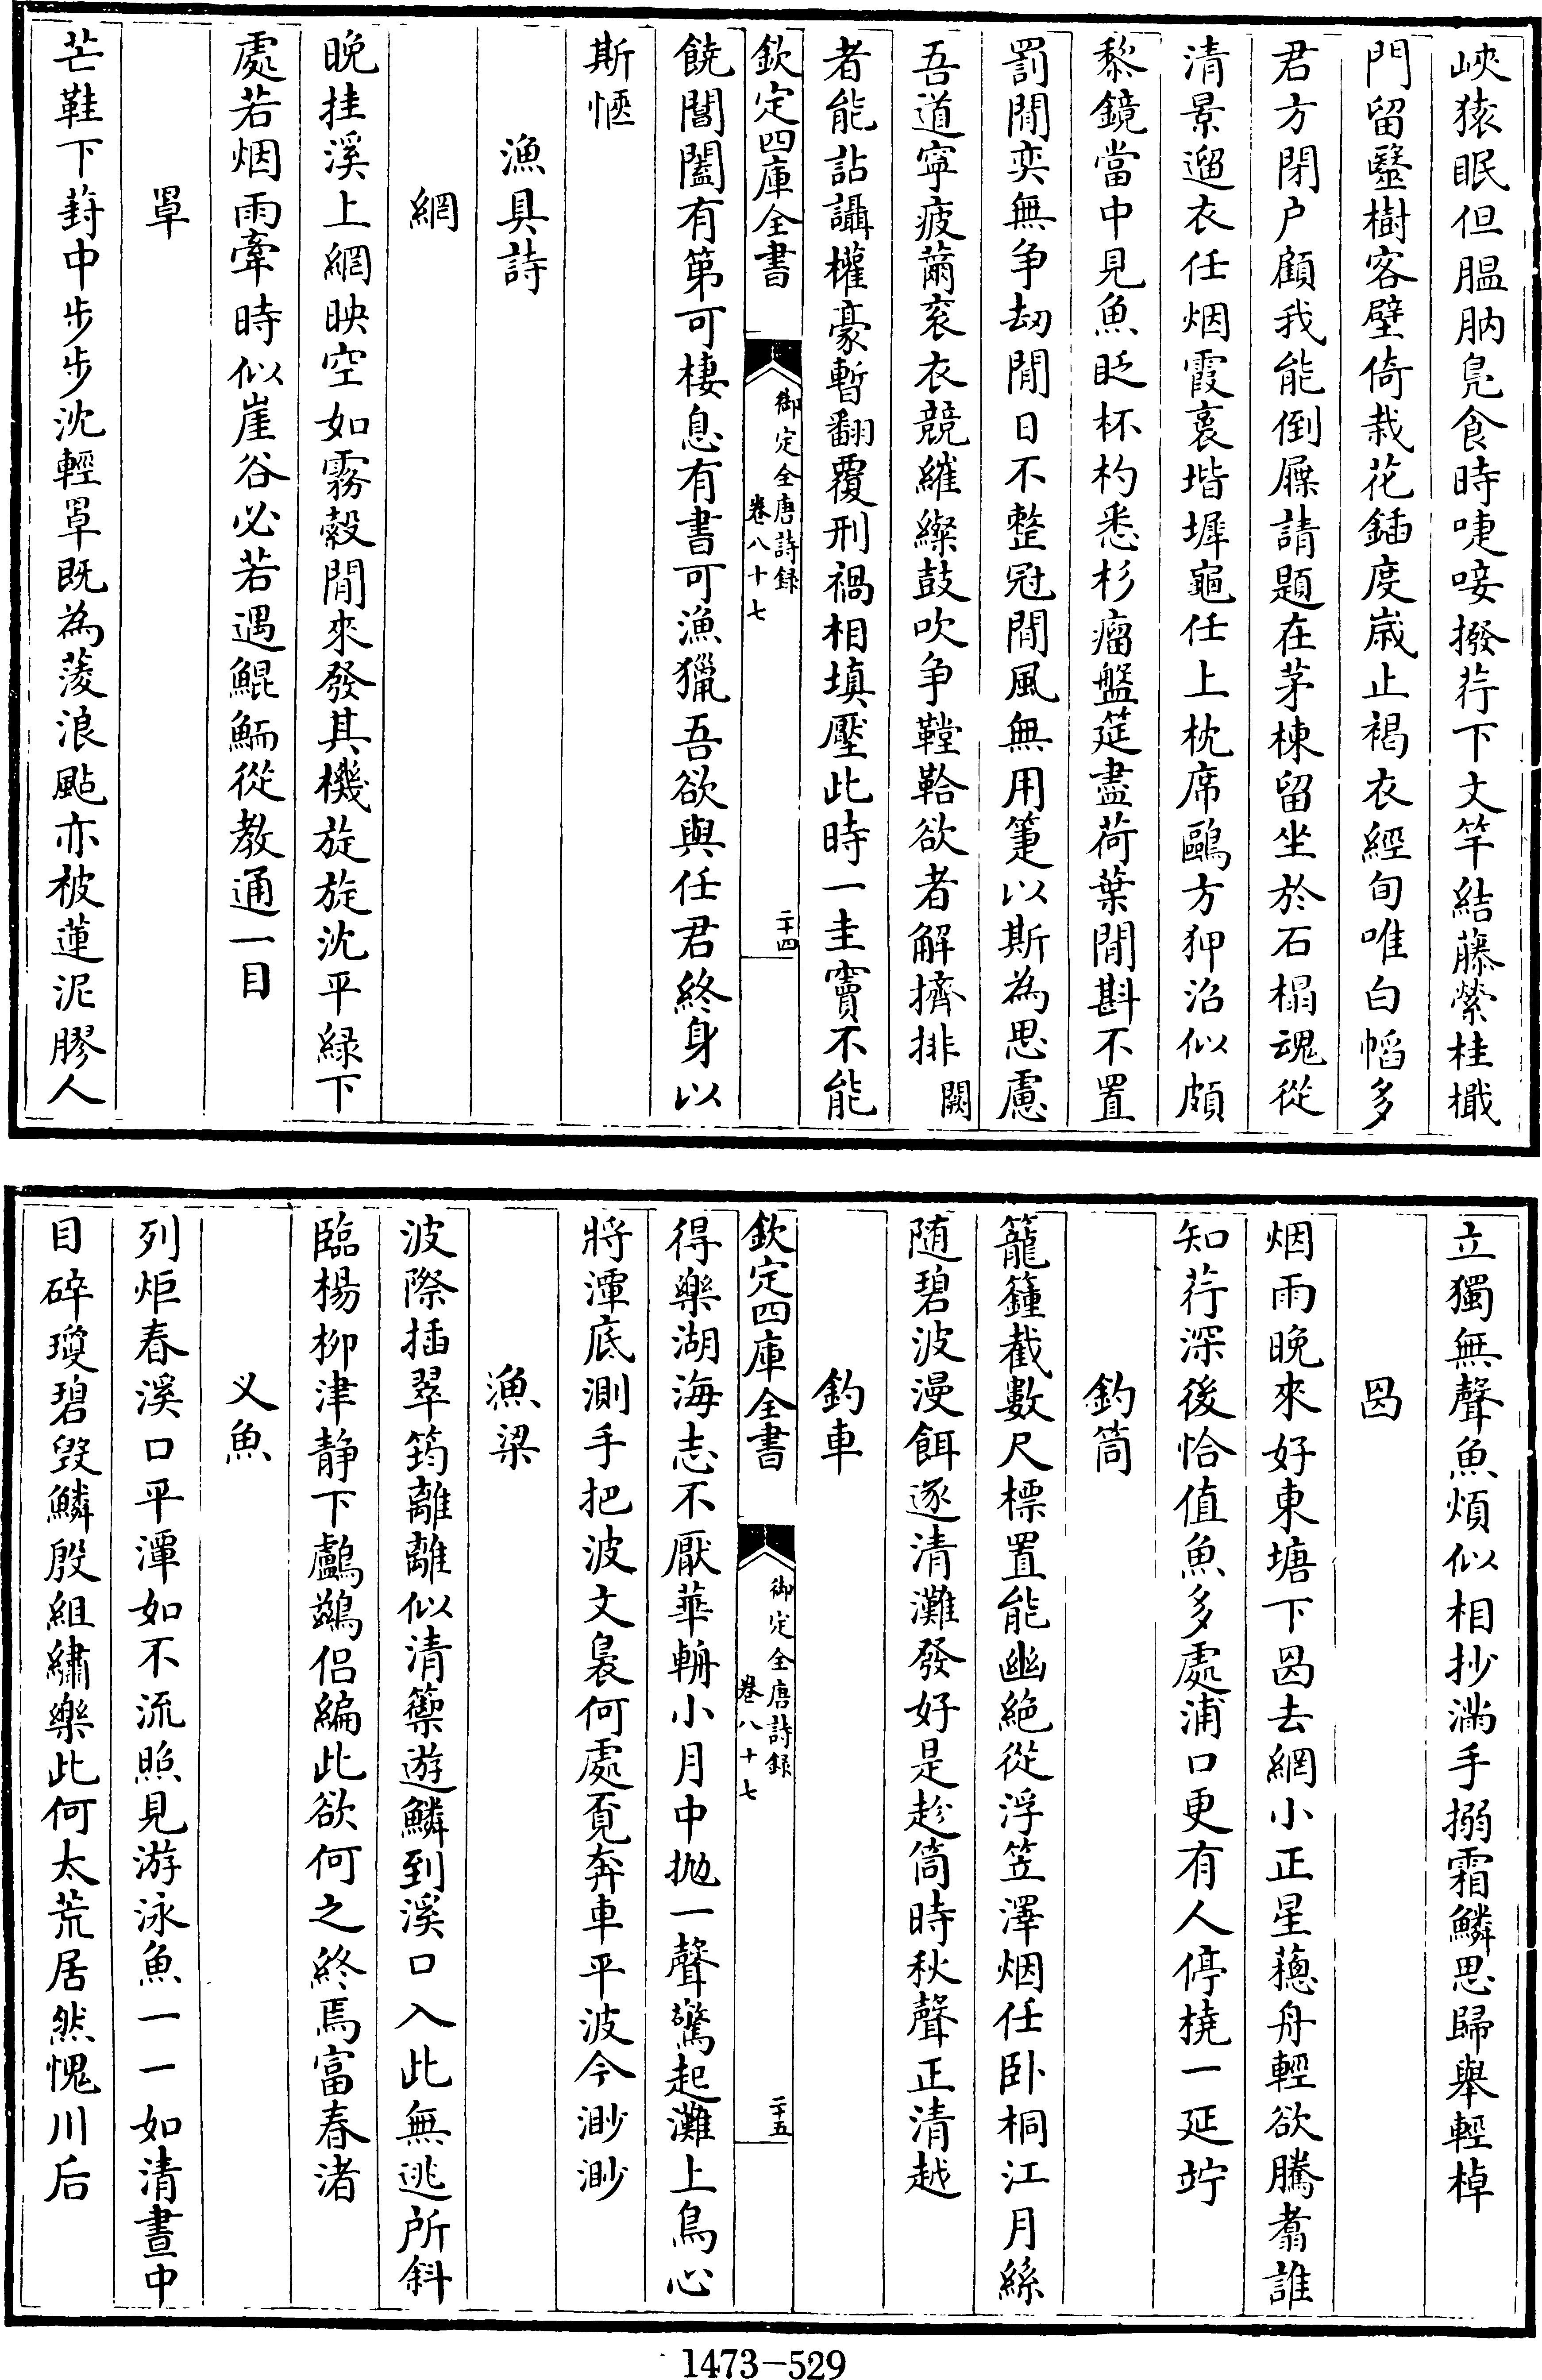 峽猿眠但腽肭鳧食時啑唼撥荇下文竿結藤縈桂檝
門留醫樹客壁倚栽花鍤度嵗止褐衣經旬唯白㡌多
君方閉户顧我能倒屣請題在茅棟留坐於石榻魂從
清景遛衣任烟霞裛堦墀龜任上枕席鷗方狎沿似頗
黎鏡當中見魚眨杯杓悉杉瘤盤筵盡荷葉閒斟不置
罰閒奕無争刼閒日不整冠閒風無用箑以斯為思慮
吾道寧疲薾衮衣競䌨繰鼓吹争鞺鞈欲者解擠排闕
者能詀讘權豪暫翻覆刑禍相填壓此時一圭竇不能
欽定四庫全書
御定全唐詩録
卷八十七
二十四
饒閶闔有第可棲息有書可漁獵吾欲與任君終身以
斯愜
漁具詩
網
晚挂溪上網映空如霧縠閒來發其機旋旋沈平緑下
處若烟雨牽時似崖谷必若遇鯤鮞從教通一目
罩
芒鞋下葑中步步沈輕罩既為菱浪颭亦被蓮泥膠人
立獨無聲魚煩似相抄滿手搦霜鱗思歸舉輕棹
罱
烟雨晚來好東塘下罱去網小正星䕺舟輕欲騰翥誰
知荇深後恰值魚多處浦口更有人停橈一延竚
釣筒
籠籦截數尺標置能幽絶從浮笠澤烟任卧桐江月絲
随碧波漫餌逐清灘發好是趁筒時秋聲正清越
釣車
欽定四庫全書
御定全唐詩録
卷八十七
二十五
得樂湖海志不厭華輈小月中抛一聲驚起灘上鳥心
將潭底測手把波文裊何處覔奔車平波今渺渺
漁梁
波際插翠筠離離似清籞遊鱗到溪口入此無逃所斜
臨楊柳津静下鸕鷀侣編此欲何之終焉富春渚
乂魚
列炬春溪口平潭如不流照見游泳魚一一如清晝中
目碎瓊碧毀鱗殷組繡樂此何太荒居然愧川后
1473-529